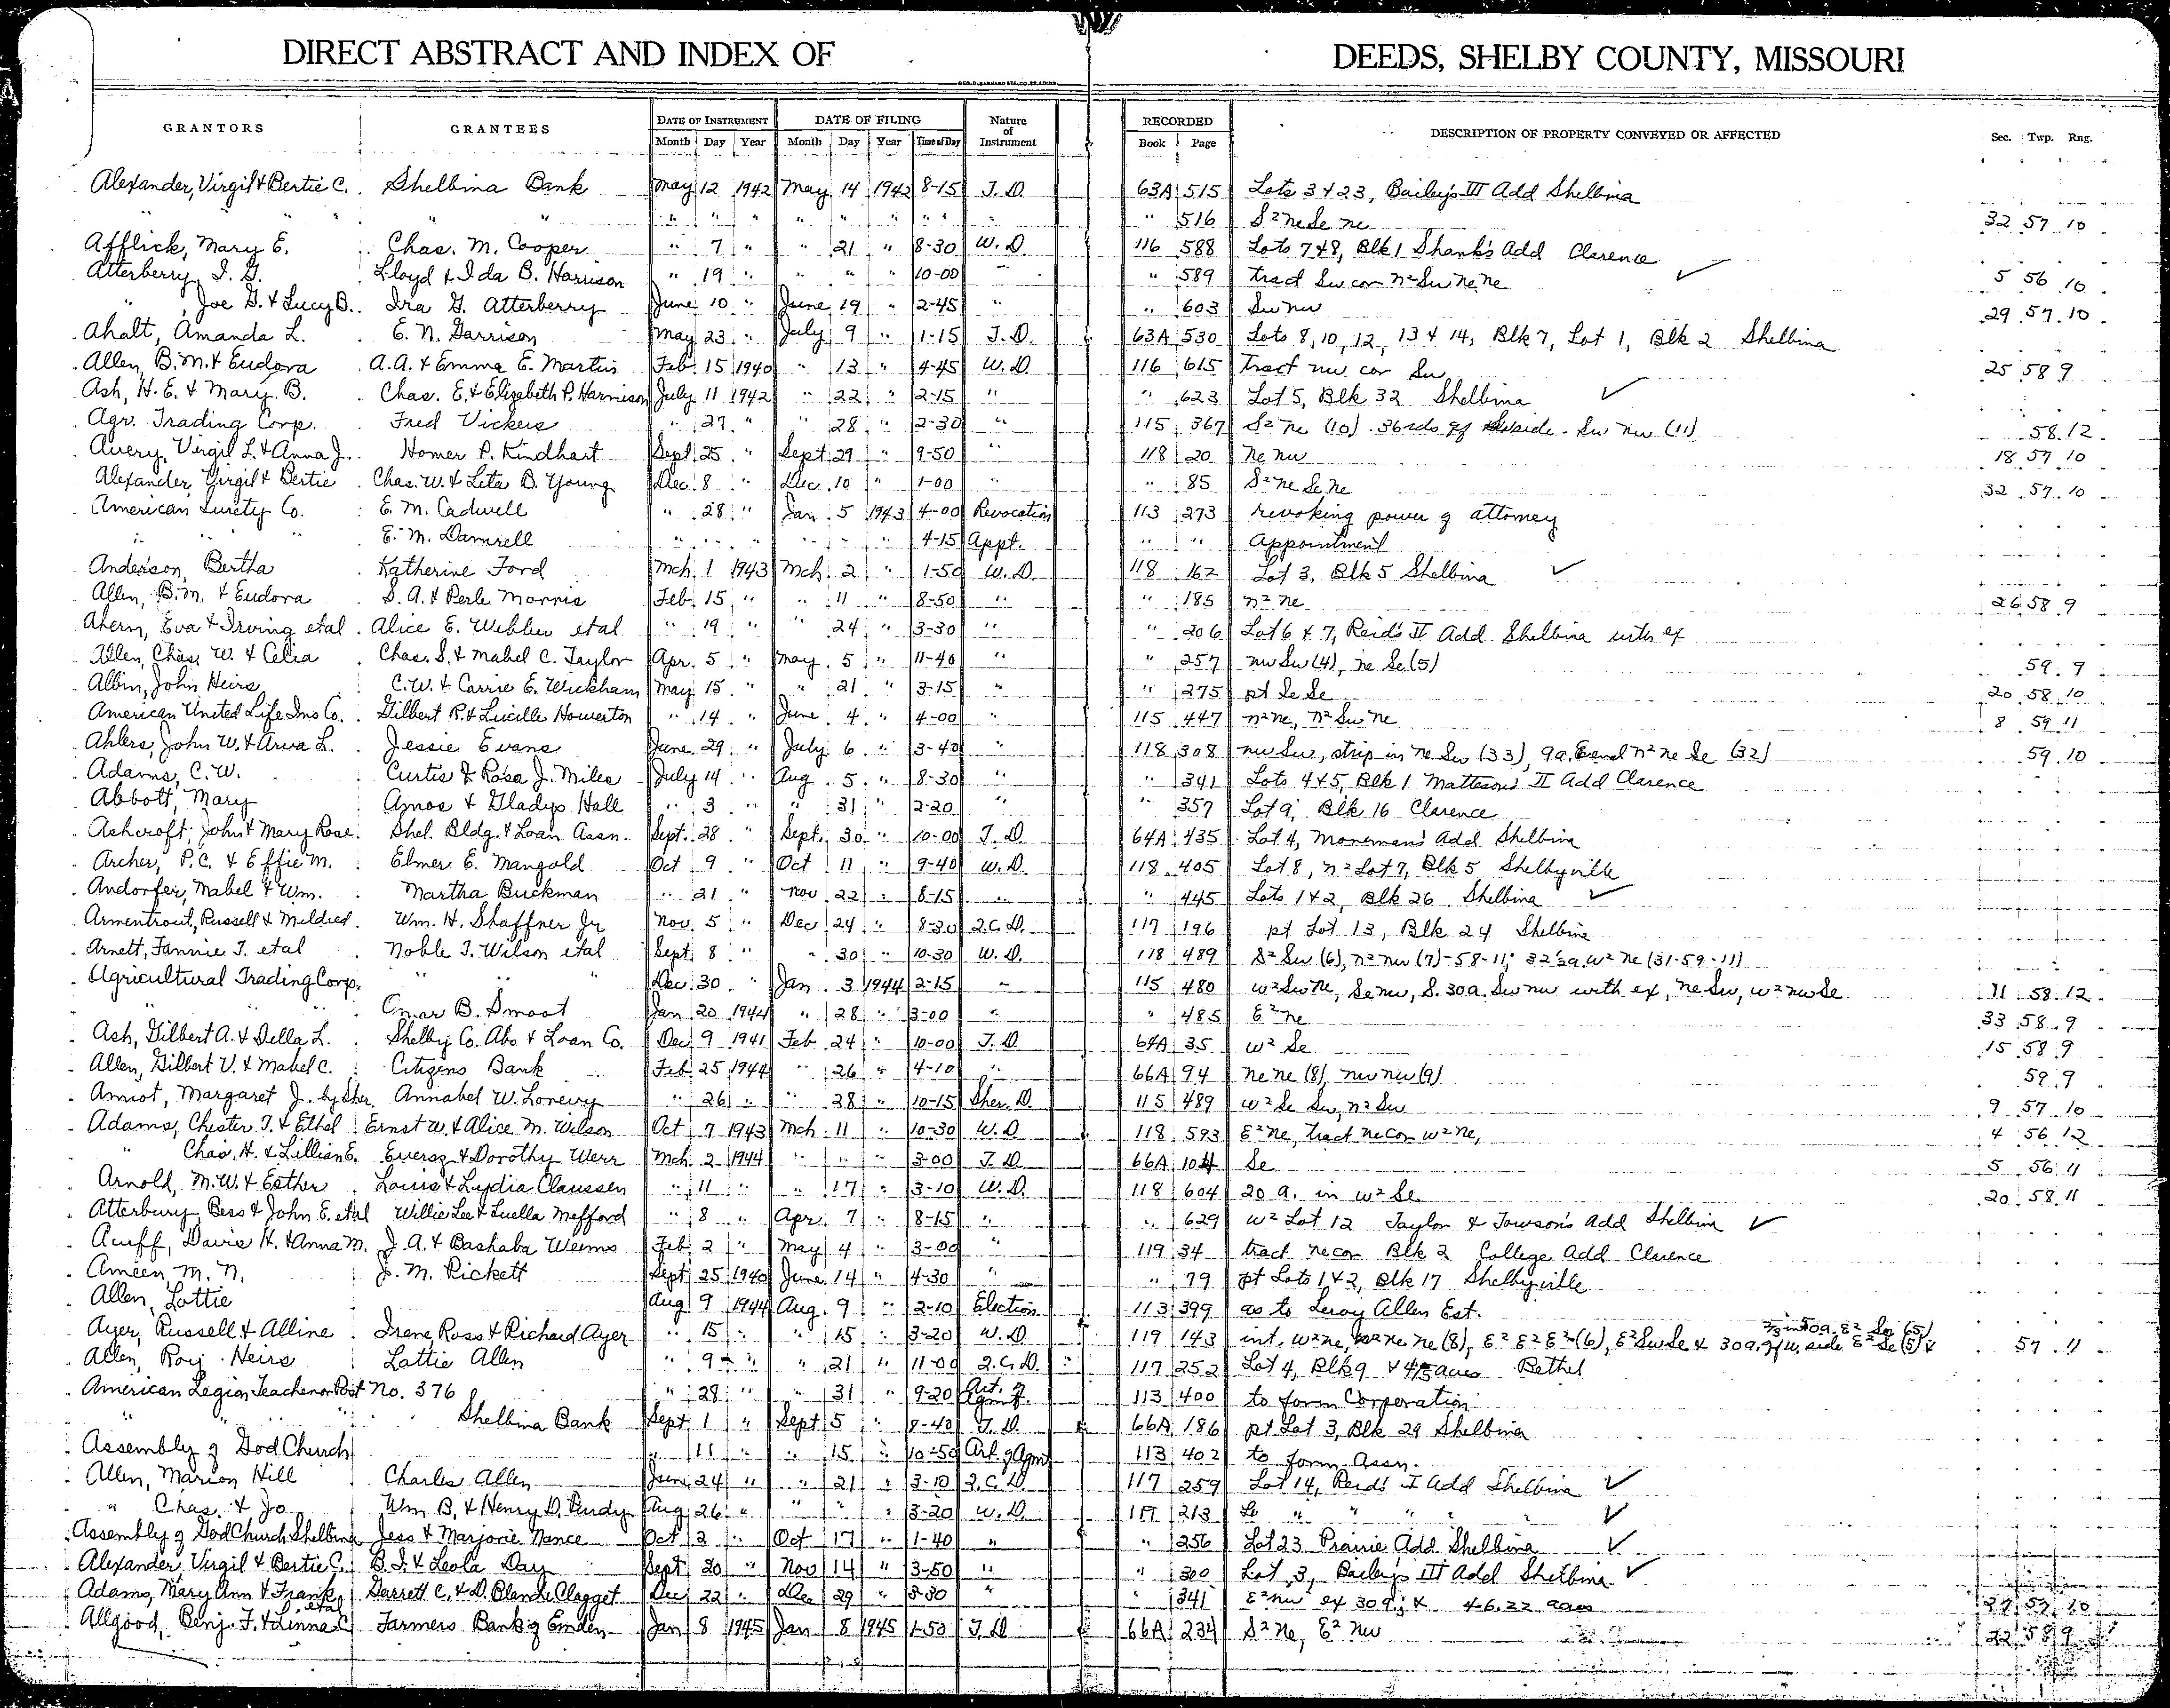 DIRECT ABSTRACT AND INDEX OF DEEDS, SHELBY COUNTY, MISSOURI
GEO. D. BARNARD STA. CO. ST. LOUIS
GRANTORS GRANTEES DATE OF INSTRUMENT DATE OF FILING Nature of Instrument RECORDED DESCRIPTION OF PROPERTY CONVEYED OR AFFECTED Sec. Twp. Rng.
Month Day Year Month Day Year Time of Day Book Page
Alexander, Virgil & Bertie C. Shelbina Bank May 12 1942 May 14 1942 8-15 T. D. 63A 515 Lots 3 & 23, Bailey's III Add Shelbina
" " " " " " " " " " " " " 516 S² ne Se ne 32 57 10
Afflick, Mary E. Chas. M. Cooper " 7 " " 21 " 8-30 W. D. 116 588 Lots 7 & 8, Blk 1 Shank's Add Clarence
Atterberry, I. G. Lloyd & Ida B. Harrison " 19 " " " " 10-00 " " 589 tract Sw cor n² Sw ne ne ✓ 5 56 10
" , Joe G. & Lucy B. Ira G. Atterberry June 10 " June 19 " 2-45 " " 603 Sw nw 29 57 10
Ahalt, Amanda L. E. N. Garrison May 23 " July 9 " 1-15 T. D. 63A 530 Lots 8, 10, 12, 13 & 14, Blk 7, Lot 1, Blk 2 Shelbina
Allen, B. M. & Eudora A. A. & Emma E. Martin Feb. 15 1940 " 13 " 4-45 W. D. 116 615 tract nw cor Sw 25 58 9
Ash, H. E. & Mary B. Chas. E. & Elizabeth P. Harrison July 11 1942 " 22 " 2-15 " " 623 Lot 5, Blk 32 Shelbina ✓
Agr. Trading Corp. Fred Vickers " 27 " " 28 " 2-30 " 115 367 S² ne (10) 36 rds off side Sw nw (11) 58 12
Avery, Virgil L. & Anna J. Homer P. Kindhart Sept 25 " Sept 29 " 9-50 " 118 20 ne nw 18 57 10
Alexander, Virgil & Bertie Chas. W. & Leta B. Young Dec. 8 " Dec. 10 " 1-00 " " 85 S² ne Se ne 32 57 10
American Surety Co. E. M. Cadwell " 28 " Jan. 5 1943 4-00 Revocation 113 273 revoking power of attorney
" " " E. M. Damrell " " " " " " 4-15 Appt. " " Appointment
Anderson, Bertha Katherine Ford Mch. 1 1943 Mch. 2 " 1-50 W. D. 118 162 Lot 3, Blk 5 Shelbina ✓
Allen, B. M. & Eudora S. A. & Perle Morris Feb. 15 " " 11 " 8-50 " " 185 n² ne 26 58 9
Ahern, Eva & Irving etal Alice E. Webber etal " 19 " " 24 " 3-30 " " 206 Lot 6 & 7, Reid's II Add Shelbina with ex
Allen, Chas. W. & Celia Chas. S. & Mabel C. Taylor Apr. 5 " May 5 " 11-40 " " 257 nw Sw (4), ne Se (5) 59 9
Albin, John Heirs C. W. & Carrie E. Wickham May 15 " " 21 " 3-15 " " 275 pt Se Se 20 58 10
American United Life Ins Co. Gilbert R. & Lucille Howerton " 14 " June 4 " 4-00 " 115 447 n² ne, n² Sw ne 8 59 11
Ahlers, John W. & Arva L. Jessie Evans June 29 " July 6 " 3-40 " 118 308 nw Sw, strip in ne Sw (33), 9a. E end n² ne Se (32) 59 10
Adams, C. W. Curtis & Rosa J. Miles July 14 " Aug. 5 " 8-30 " " 341 Lots 4 & 5, Blk 1 Matteson's II Add Clarence
Abbott, Mary Amos & Gladys Hall " 3 " " 31 " 2-20 " " 357 Lot 9, Blk 16 Clarence
Ashcroft, John & Mary Rose Shel. Bldg. & Loan Assn. Sept. 28 " Sept. 30 " 10-00 T. D. 64A 435 Lot 4, Moreman's Add Shelbina
Archer, P. C. & Effie M. Elmer E. Mangold Oct 9 " Oct 11 " 9-40 W. D. 118 405 Lot 8, n² Lot 7, Blk 5 Shelbyville
Andorfer, Mabel & Wm. Martha Buckman " 21 " Nov 22 " 8-15 " " 445 Lots 1 & 2, Blk 26 Shelbina ✓
Armentrout, Russell & Mildred Wm. H. Shaffner Jr Nov. 5 " Dec 24 " 8-30 Q. C. D. 117 196 pt Lot 13, Blk 24 Shelbina
Arnett, Fannie T. etal Noble T. Wilson etal Sept. 8 " " 30 " 10-30 W. D. 118 489 S² Sw (6), n² nw (7)-58-11; 32 a w² ne (31-59-11)
Agricultural Trading Corp. " " " Dec. 30 " Jan. 3 1944 2-15 " 115 480 w² Sw ne, Se nw, S. 30a. Sw nw with ex, ne Sw, w² nw Se 11 58 12
" " " Omar B. Smoot Jan 20 1944 " 28 " 3-00 " " 485 E² ne 33 58 9
Ash, Gilbert A. & Della L. Shelby Co. Abs & Loan Co. Dec. 9 1941 Feb 24 " 10-00 T. D. 64A 35 w² Se 15 58 9
Allen, Gilbert V. & Mabel C. Citizens Bank Feb 25 1944 " 26 " 4-10 " 66A 94 ne ne (8), nw nw (9) 59 9
Amiot, Margaret J. by Sher. Annabel W. Lonewy " 26 " " 28 " 10-15 Sher. D. 115 489 w² Se Sw, n² Sw 9 57 10
Adams, Chester T. & Ethel Ernst W. & Alice M. Wilson Oct 7 1943 Mch 11 " 10-30 W. D 118 593 E² ne, tract ne cor w² ne, 4 56 12
" Chas. H. & Lillian E. & Dorothy Werr Mch 2 1944 " " " 3-00 T. D. 66A 104 Se 5 56 11
Arnold, M. W. & Esther Louis & Lydia Claussen " 11 " " 17 " 3-10 W. D. 118 604 20 a. in w² Se 20 58 11
Atterbury, Bess & John E. etal Willie Lee & Luella Mefford " 8 " Apr. 7 " 8-15 " " 629 w² Lot 12 Taylor & Towson's Add Shelbina ✓
Acuff, Davis H. & Anna M. J. A. & Bashaba Weems Feb 2 " May 4 " 3-00 " 119 34 tract ne cor Blk 2 College Add Clarence
Ameen, M. N. J. M. Pickett Sept 25 1940 June 14 " 4-30 " " 79 pt Lots 1 & 2, Blk 17 Shelbyville
Allen, Lottie Aug 9 1944 Aug. 9 " 2-10 Election 113 399 as to Leroy Allen Est.
Ayer, Russell & Alline Irene, Ross & Richard Ayer " 15 " " 15 " 3-20 W. D. 119 143 int. w² ne, ne ne (8), E² E² E² (6), E² Sw Se & 30a. off w. side E² Se (5) & 57 11
Allen, Roy Heirs Lattie Allen " 9 " " 21 " 11-00 Q. C. D. 117 252 Lot 4, Blk 9 & 4/5 acres Bethel
American Legion Teachenor Post No. 376 " 28 " " 31 " 9-20 Art. of Agmt. 113 400 to form Corporation
" " " Shelbina Bank Sept 1 " Sept 5 " 8-40 T. D. 66A 186 pt Lot 3, Blk 29 Shelbina
Assembly of God Church " 11 " " 15 " 10-50 Art. of Agmt 113 402 to form Assn.
Allen, Marion Hill Charles Allen June 24 " " 21 " 3-10 Q. C. D. 117 259 Lot 14, Reid's I Add Shelbina ✓
" Chas. & Jo Wm B. & Henry D. Purdy Aug 26 " " " " 3-20 W. D. 119 213 " " " " ✓
Assembly of God Church Shelbina Jess & Marjorie Nance Oct 2 " Oct 17 " 1-40 " " 256 Lot 23 Prairie Add. Shelbina ✓
Alexander, Virgil & Bertie C. B. I. & Leola Day Sept 20 " Nov 14 " 3-50 " " 300 Lot 3, Bailey's III Add Shelbina ✓
Adams, Mary Ann & Frank etal Garrett C. & D. Blande Clagget Dec 22 " Dec 29 " 8-30 " " 341 E² nw ex 30a; & 46.22 acres 57 10
Allgood, Benj. F. & Linna C. Farmers Bank of Emden Jan 8 1945 Jan 8 1945 1-50 T. D 66A 234 S² ne, E² nw 22 58 9